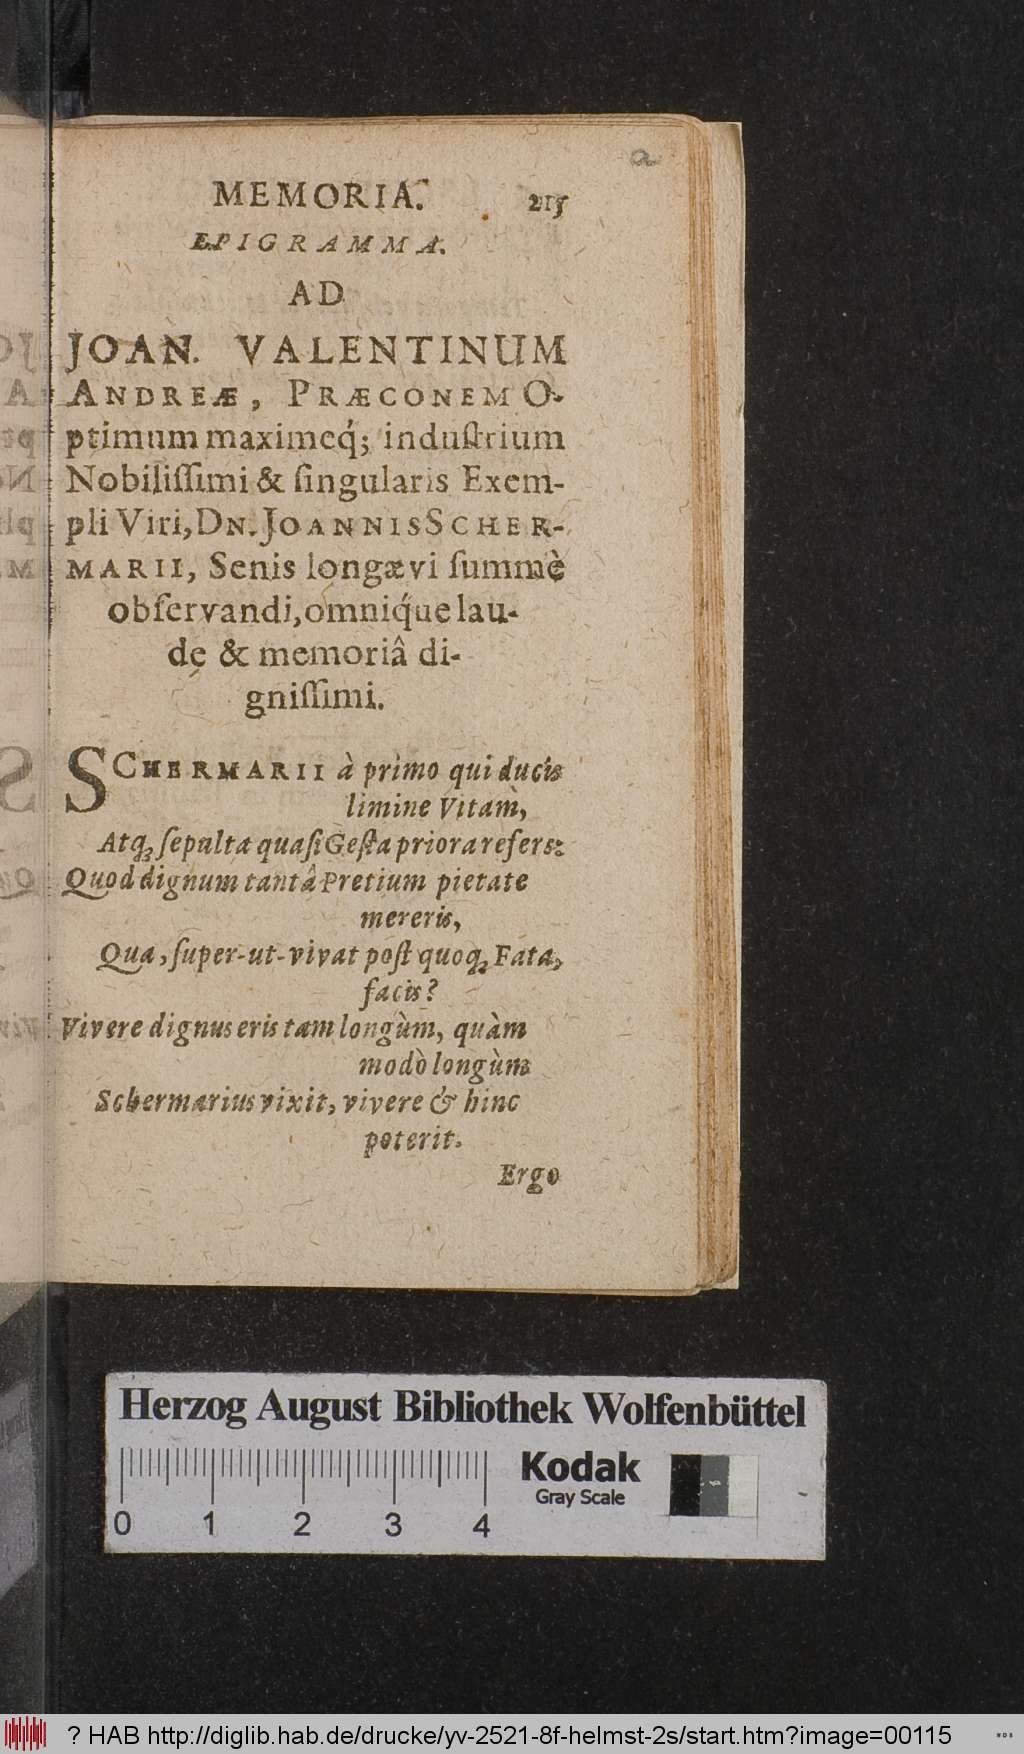 MEMORIA. 215
EPIGRAMMA.
AD
JOAN. VALENTINUM
ANDREÆ, PRÆCONEM O-
ptimum maximeq́; induſtrium
Nobiliſſimi & ſingularis Exem-
pli Viri, DN. JOANNIS SCHER-
MARII, Senis longævi ſummè
obſervandi, omniq́ue lau-
de & memoriâ di-
gniſſimi.
SCHERMARII à primo qui ducis
limine Vitam,
Atq; ſepulta quaſi Geſta priora refers:
Quod dignum tantâ Pretium pietate
mereris,
Qua, ſuper-ut-vivat poſt quoq; Fata,
facis?
Vivere dignus eris tam longùm, quàm
modò longùm
Schermarius vixit, vivere & hinc
poterit.
Ergo
Herzog August Bibliothek Wolfenbüttel
Kodak
Gray Scale
0 1 2 3 4
? HAB http://diglib.hab.de/drucke/yv-2521-8f-helmst-2s/start.htm?image=00115